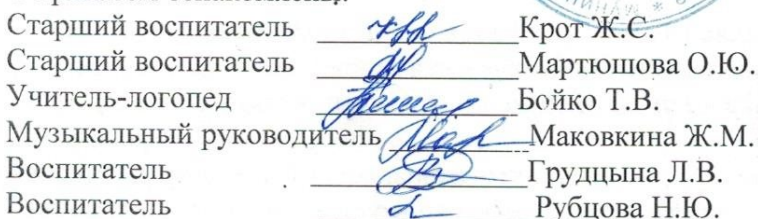 Старший воспитатель Крот Ж.С.
Старший воспитатель Мартюшова О.Ю.
Учитель-логопед Бойко Т.В.
Музыкальный руководитель Маковкина Ж.М.
Воспитатель Грудцына Л.В.
Воспитатель Рубцова Н.Ю.